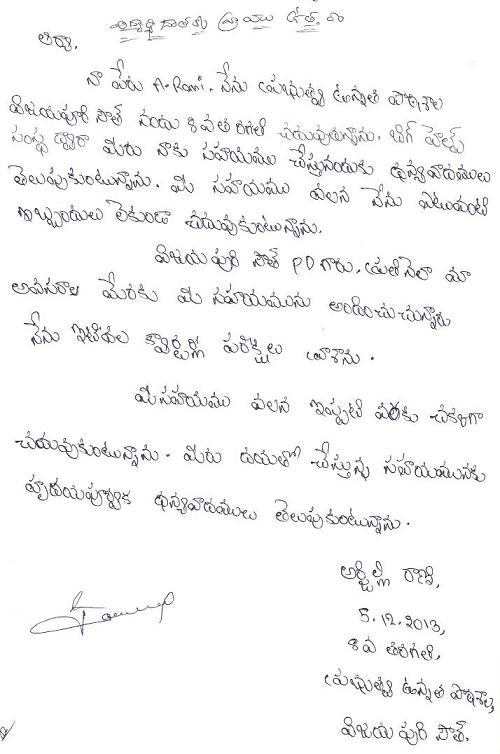 విద్యార్థి దాతకు వ్రాయు ఉత్తరం
ఆర్యా,
నా పేరు A. Rani. నేను ప్రభుత్వ ఉన్నత పాఠశాల
విజయపురి సౌత్ నందు 8వ తరగతి చదువుతున్నాను. బిగ్ హెల్ప్
సంస్థ ద్వారా మీరు నాకు సహాయము చేస్తునందుకు ధన్యవాదములు
తెలుపుకుంటున్నాను. మీ సహాయము వలన నేను ఎటువంటి
ఇబ్బందులు లేకుండా చదువుకుంటున్నాను.
విజయ పురి సౌత్ PD గారు. ప్రతినెలా మా
అవసరాల మేరకు మీ సహాయమును అందించుచున్నారు
నేను ఇటీవల క్వార్టర్లీ పరీక్షలు వ్రాశాను.
మీ సహాయము వలన ఇప్పటి వరకు చక్కగా
చదువుకుంటున్నాను. మీరు దయతో చేస్తున్న సహాయమునకు
హృదయపూర్వక ధన్యవాదములు తెలుపుకుంటున్నాను.
రాణి,
5.12.2013,
8వ తరగతి,
ప్రభుత్వ ఉన్నత పాఠశాల,
విజయ పురి సౌత్.